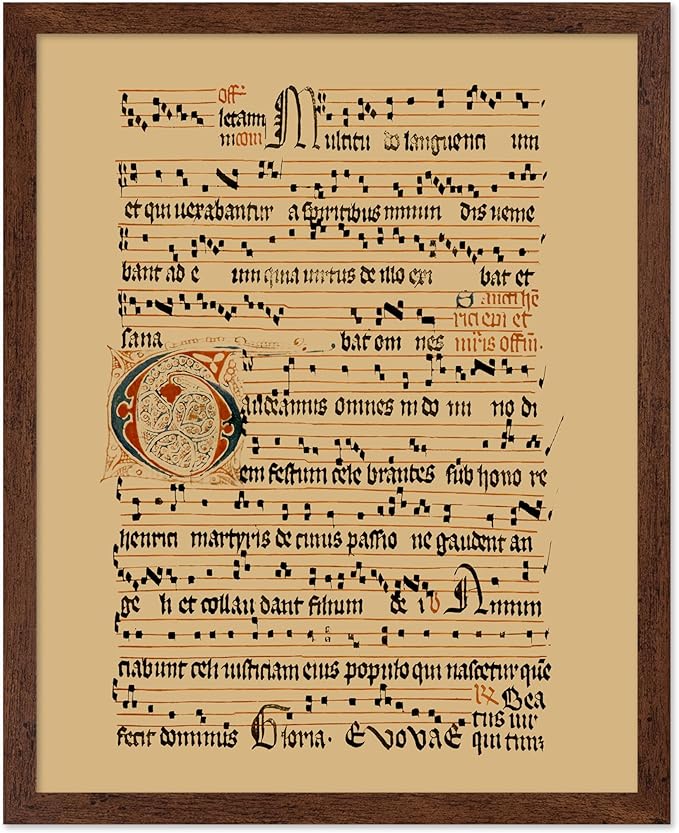 off
letam Multitu do languenti um
ni com
et qui uexabantur a spiritibus inmun dis ueme
bant ad e um quia uirtus de illo exi bat et
sana bat om nes
Sancti hē
rici epi et
mris offm.
Gaudeamus omnes in do mi no di
em festum cele brantes sub hono re
henrici martyris de cuius passio ne gaudent an
ge li et collau dant filium de i V Annun
ciabunt celi iusticiam eius populo qui nascetur quē
fecit dominus Gloria. EVOVAE
R Bea
tus uir
qui tim